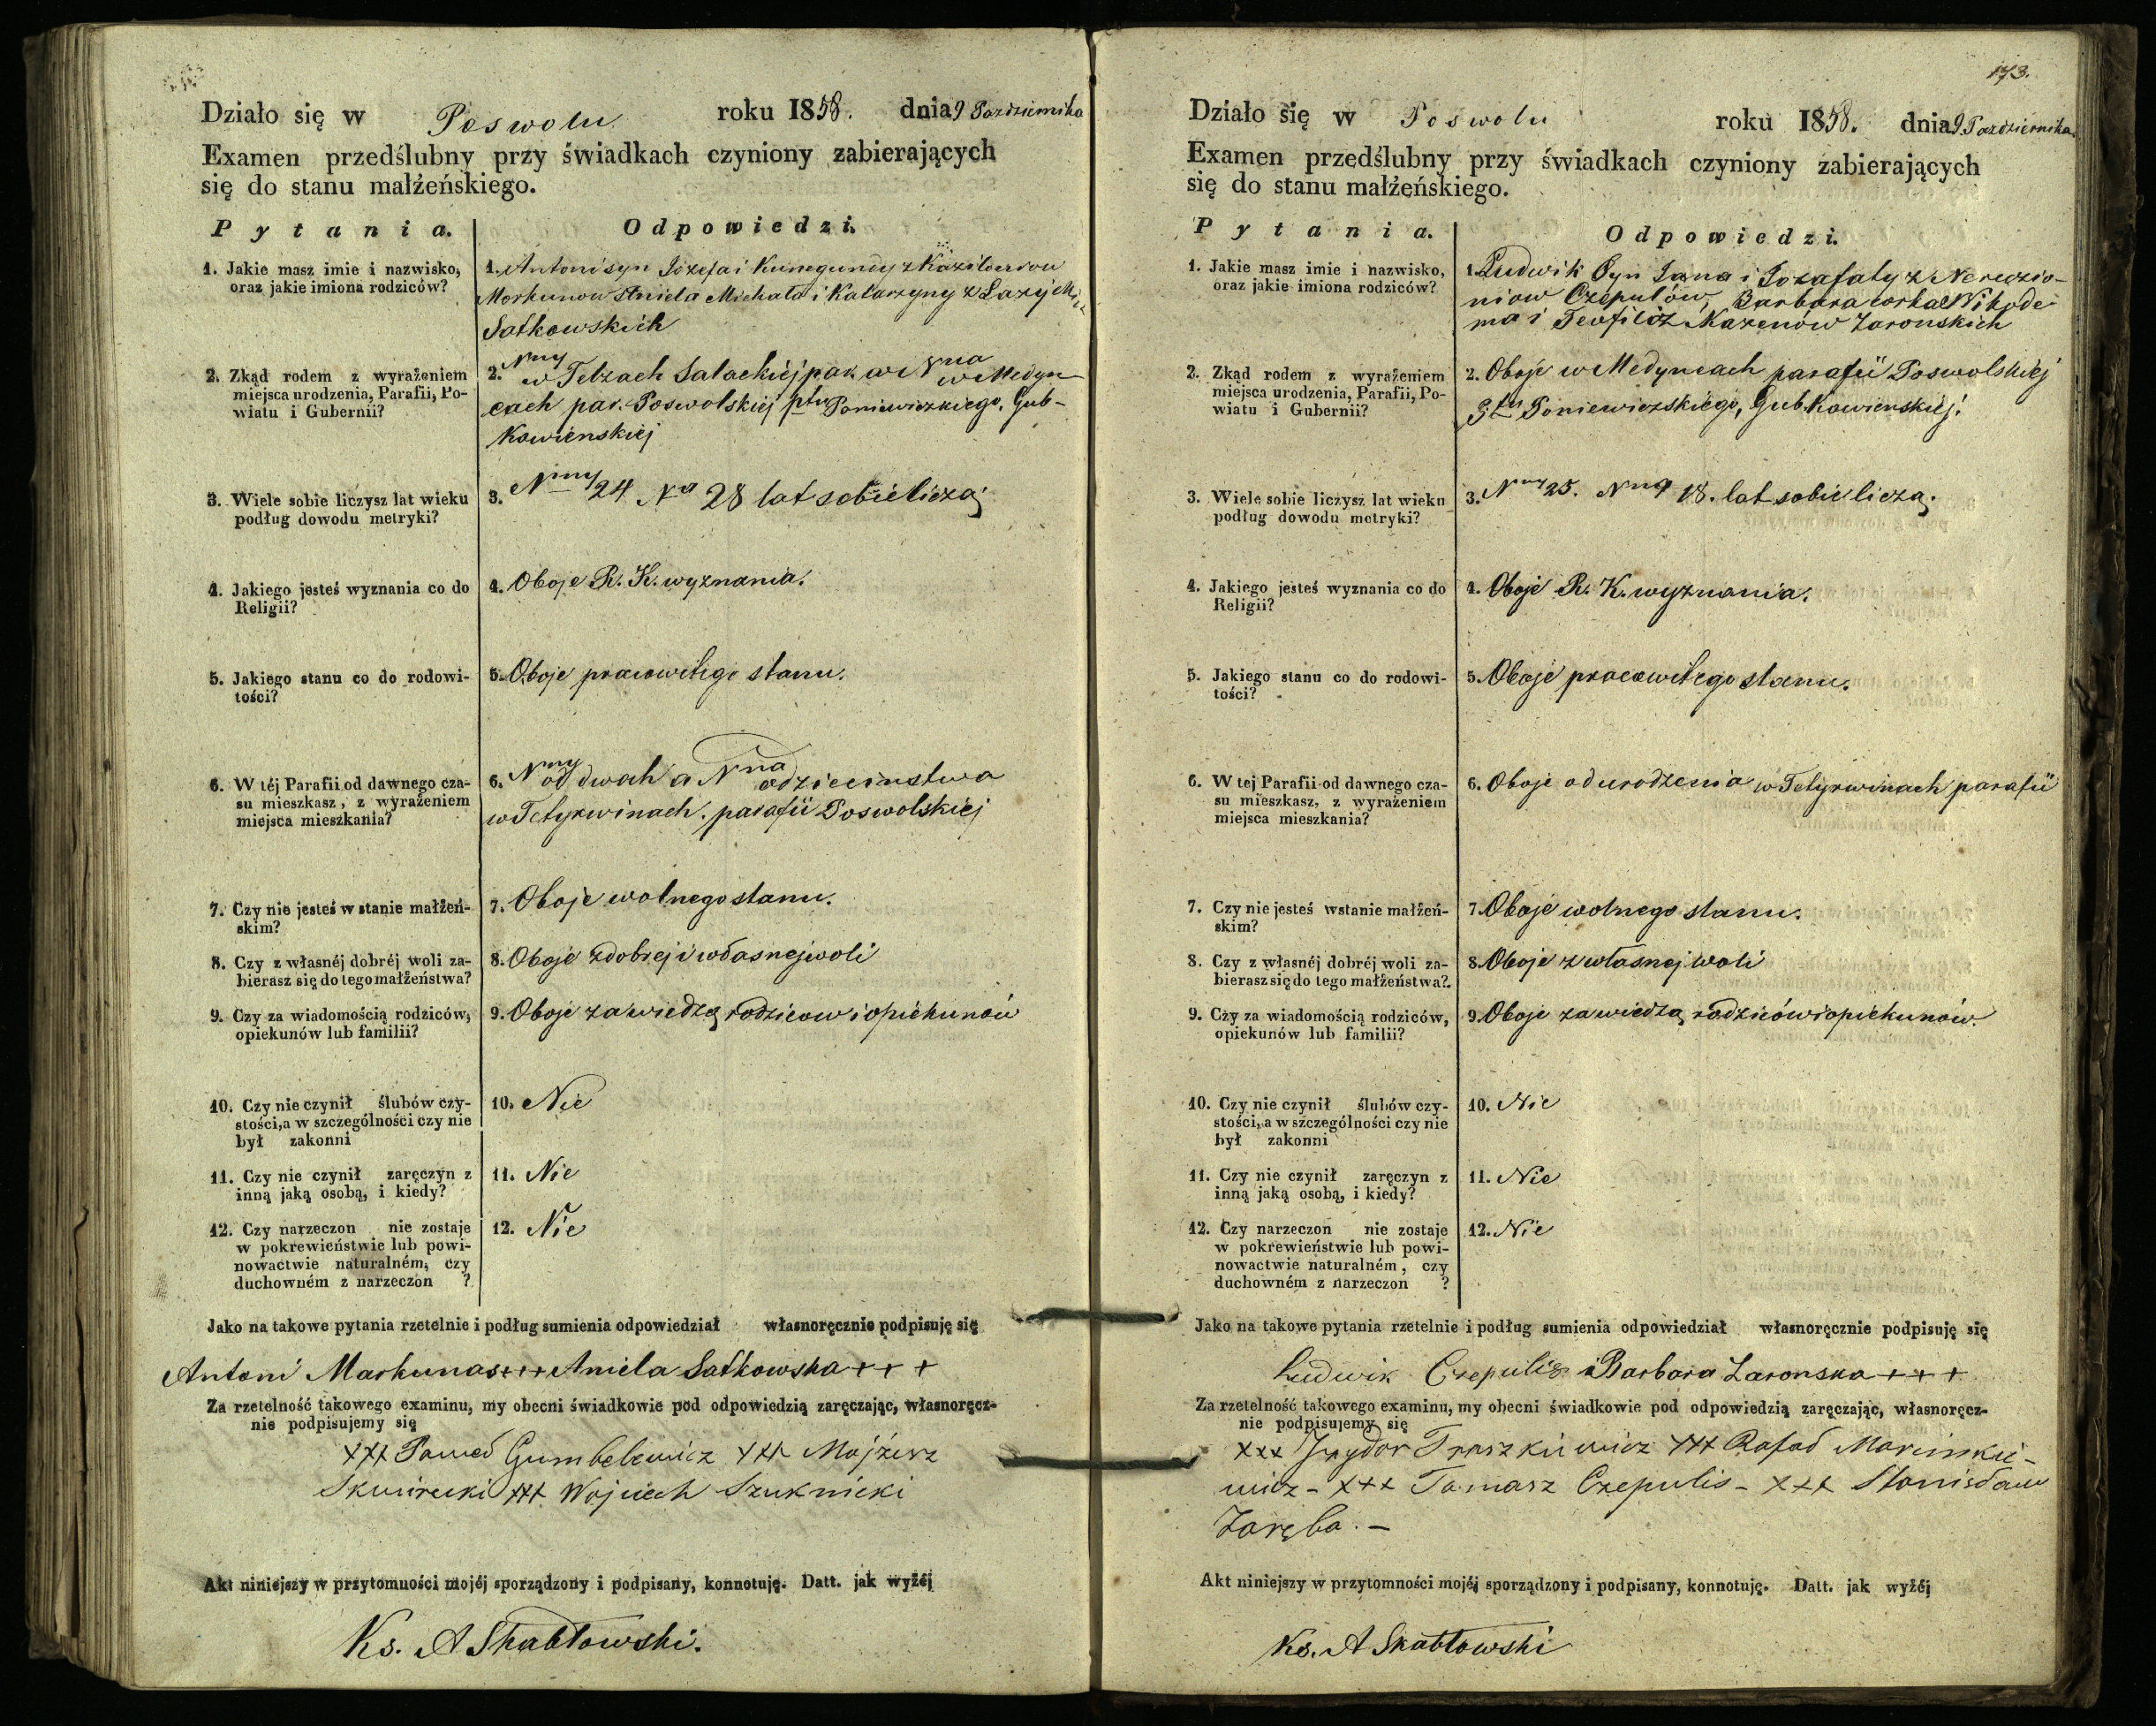 Działo się w Poswolu roku 1858. dnia 9 Pazdziernika
Examen przedślubny przy świadkach czyniony zabierających
się do stanu małżeńskiego.
Pytania. Odpowiedzi.
1. Jakie masz imie i nazwisko,
oraz jakie imiona rodziców?
1. Antoni syn Józefa i Kunegundy z
Morkunow Aniela Michała i Katarzyny z
Satkowskich
2. Zkąd rodem z wyrażeniem
miejsca urodzenia, Parafii, Po-
wiatu i Gubernii?
2. Nny w Telzach Salackiej par. a Nna w Medyn-
cach par. Poswolskiej ptu Poniewiezkiego, Gub-
Kowienskiej
3. Wiele sobie liczysz lat wieku
podług dowodu metryki?
3. Nny 24 Na 28 lat sobie liczą
4. Jakiego jesteś wyznania co do
Religii?
4. Oboje R. K. wyznania.
5. Jakiego stanu co do rodowi-
tości?
5. Oboje pracowitego stanu.
6. W téj Parafii od dawnego cza-
su mieszkasz, z wyrażeniem
miejsca mieszkania?
6. Nny od dwah a Nna od dzieciństwa
w Tetyrwinach. parafii Poswolskiej
7. Czy nie jesteś w stanie małżeń-
skim?
7. Oboje wolnego stanu.
8. Czy z własnéj dobréj woli za-
bierasz się do tego małżeństwa?
8. Oboje z dobrej i własnej woli
9. Czy za wiadomością rodziców,
opiekunów lub familii?
9. Oboje za wiedzą rodzicow i opiekunów
10. Czy nie czynił ślubów czy-
stości, a w szczególności czy nie
był zakonni
10. Nie
11. Czy nie czynił zaręczyn z
inną jaką osobą, i kiedy?
11. Nie
12. Czy narzeczon nie zostaje
w pokrewieństwie lub powi-
nowactwie naturalném, czy
duchowném z narzeczon ?
12. Nie
Jako na takowe pytania rzetelnie i podług sumienia odpowiedział własnoręcznie podpisuję się
Antoni Markunas +++ Aniela Satkowska +++
Za rzetelność takowego examinu, my obecni świadkowie pod odpowiedzią zaręczając, własnoręcz-
nie podpisujemy się
+++ Paweł Gumbelewicz +++ Mojżesz
Skwirecki +++ Wojciech Szuknicki
Akt niniejszy w przytomności mojéj sporządzony i podpisany, konnotuję. Datt. jak wyżéj
Ks. A Skabłowski.
173.
Działo się w Poswolu roku 1858. dnia 9 Pazdziernika
Examen przedślubny przy świadkach czyniony zabierających
się do stanu małżeńskiego.
Pytania. Odpowiedzi.
1. Jakie masz imie i nazwisko,
oraz jakie imiona rodziców?
1. Ludwik Syn Jana i Jozafaty z
Czepulów, Barbara corka Nikode-
ma i Teofili z Mazenów Zaronskich
2. Zkąd rodem z wyrażeniem
miejsca urodzenia, Parafii, Po-
wiatu i Gubernii?
2. Oboje w Medyncach parafii Poswolskiej
Ptu Poniewiezskiego, Gub. Kowienskiej.
3. Wiele sobie liczysz lat wieku
podług dowodu metryki?
3. Nny 25. Nna 18. lat sobie liczą.
4. Jakiego jesteś wyznania co do
Religii?
4. Oboje R. K. wyznania.
5. Jakiego stanu co do rodowi-
tości?
5. Oboje pracowitego stanu.
6. W tej Parafii od dawnego cza-
su mieszkasz, z wyrażeniem
miejsca mieszkania?
6. Oboje od urodzenia w Tetyrwinach parafii
7. Czy nie jesteś wstanie małżeń-
skim?
7. Oboje wolnego stanu.
8. Czy z własnéj dobréj woli za-
bierasz się do tego małżeństwa?
8. Oboje z własnej woli
9. Czy za wiadomością rodziców,
opiekunów lub familii?
9. Oboje za wiedzą rodziców i opiekunów.
10. Czy nie czynił ślubów czy-
stości, a w szczególności czy nie
był zakonni
10. Nie
11. Czy nie czynił zaręczyn z
inną jaką osobą, i kiedy?
11. Nie
12. Czy narzeczon nie zostaje
w pokrewieństwie lub powi-
nowactwie naturalném, czy
duchowném z narzeczon ?
12. Nie
Jako na takowe pytania rzetelnie i podług sumienia odpowiedział własnoręcznie podpisuję się
Ludwik Czepulis i Barbara Zaronska +++
Za rzetelność takowego examinu, my obecni świadkowie pod odpowiedzią zaręczając, własnoręcz-
nie podpisujemy się
+++ Jzydor Traszkiewicz +++ Rafał Marcinkie-
wicz - +++ Tamasz Czepulis - +++ Stanisław
Zaręba. -
Akt niniejszy w przytomności mojéj sporządzony i podpisany, konnotuję. Datt. jak wyżéj
Ks. A Skabłowski